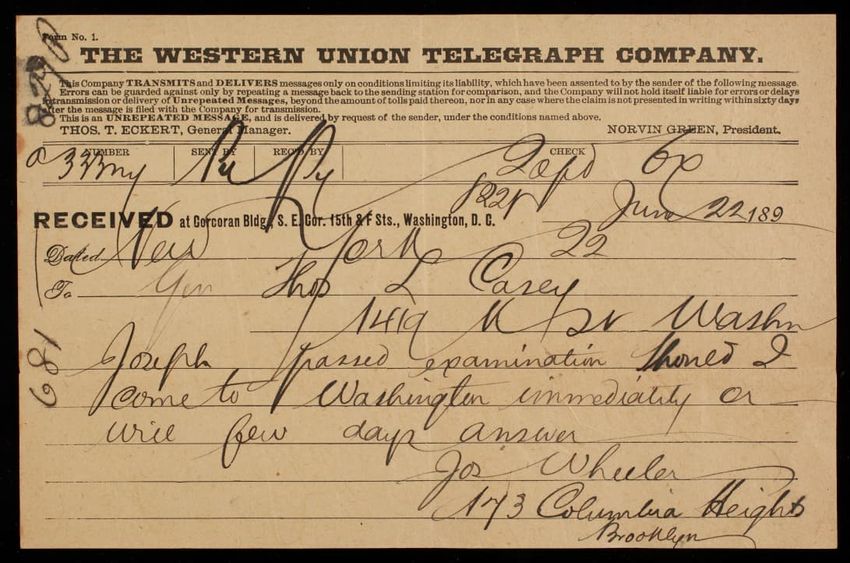 Form No. 1.
THE WESTERN UNION TELEGRAPH COMPANY.
This Company TRANSMITS and DELIVERS messages only on conditions limiting its liability, which have been assented to by the sender of the following message.
Errors can be guarded against only by repeating a message back to the sending station for comparison, and the Company will not hold itself liable for errors or delays
in transmission or delivery of Unrepeated Messages, beyond the amount of tolls paid thereon, nor in any case where the claim is not presented in writing within sixty days
after the message is filed with the Company for transmission.
This is an UNREPEATED MESSAGE, and is delivered by request of the sender, under the conditions named above.
THOS. T. ECKERT, General Manager. NORVIN GREEN, President.
NUMBER SENT BY REC'D BY CHECK
333ny
822P
RECEIVED at Corcoran Bldg., S. E. Cor. 15th & F Sts., Washington, D. C. June 22 189
Dated New York 22
To Gen Thos L Casey
1419 K St Washn
Joseph passed examination should I
come to Washington immediately or
will few days answer
Jos Wheeler
173 Columbia Heights
Brooklyn